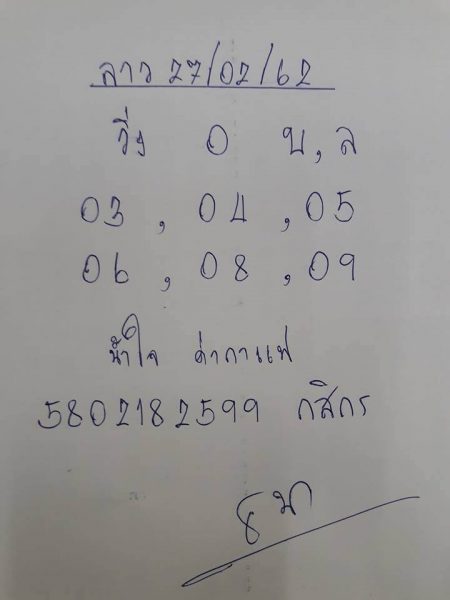 ลาว 27/02/62
วิ่ง 0 บ,ล
03 , 04 , 05
06 , 08 , 09
น้ำใจ ค่ากาแฟ
5802182599 กสิกร